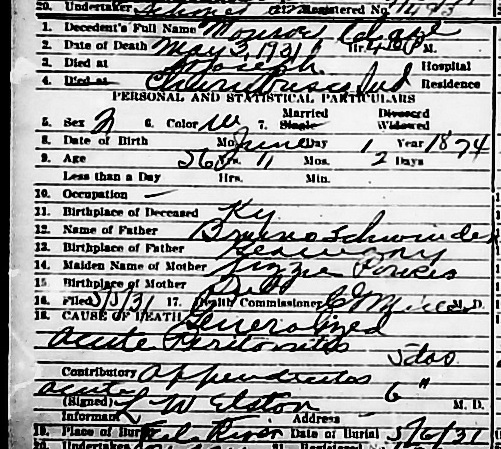 20. Undertaker Registered No.
1. Decedent's Full Name Monroe
2. Date of Death May 3, 1931 Hr. 4 P M.
3. Died at St Joseph. Hospital
4. Died at Churubusco Ind Residence
PERSONAL AND STATISTICAL PARTICULARS
Married Divorced
5. Sex M 6. Color W 7. Single Widowed
8. Date of Birth Mo. June Day 1 Year 1874
9. Age 56 Yrs. 11 Mos. 2 Days
Less than a Day Hrs. Min.
10. Occupation —
11. Birthplace of Deceased Ky
12. Name of Father Bruno
13. Birthplace of Father Germany
14. Maiden Name of Mother Lizzie
15. Birthplace of Mother
16. Filed 5/5/31 17. Health Commissioner M. D.
18. CAUSE OF DEATH Generalized
Acute Peritonitis 5 das
Contributory Appendicitis
acute 6 "
(Signed) L W Elston M. D.
Informant Address
19. Place of Burial Eel River Date of Burial 5/6/31
20. Undertaker 21. Registered